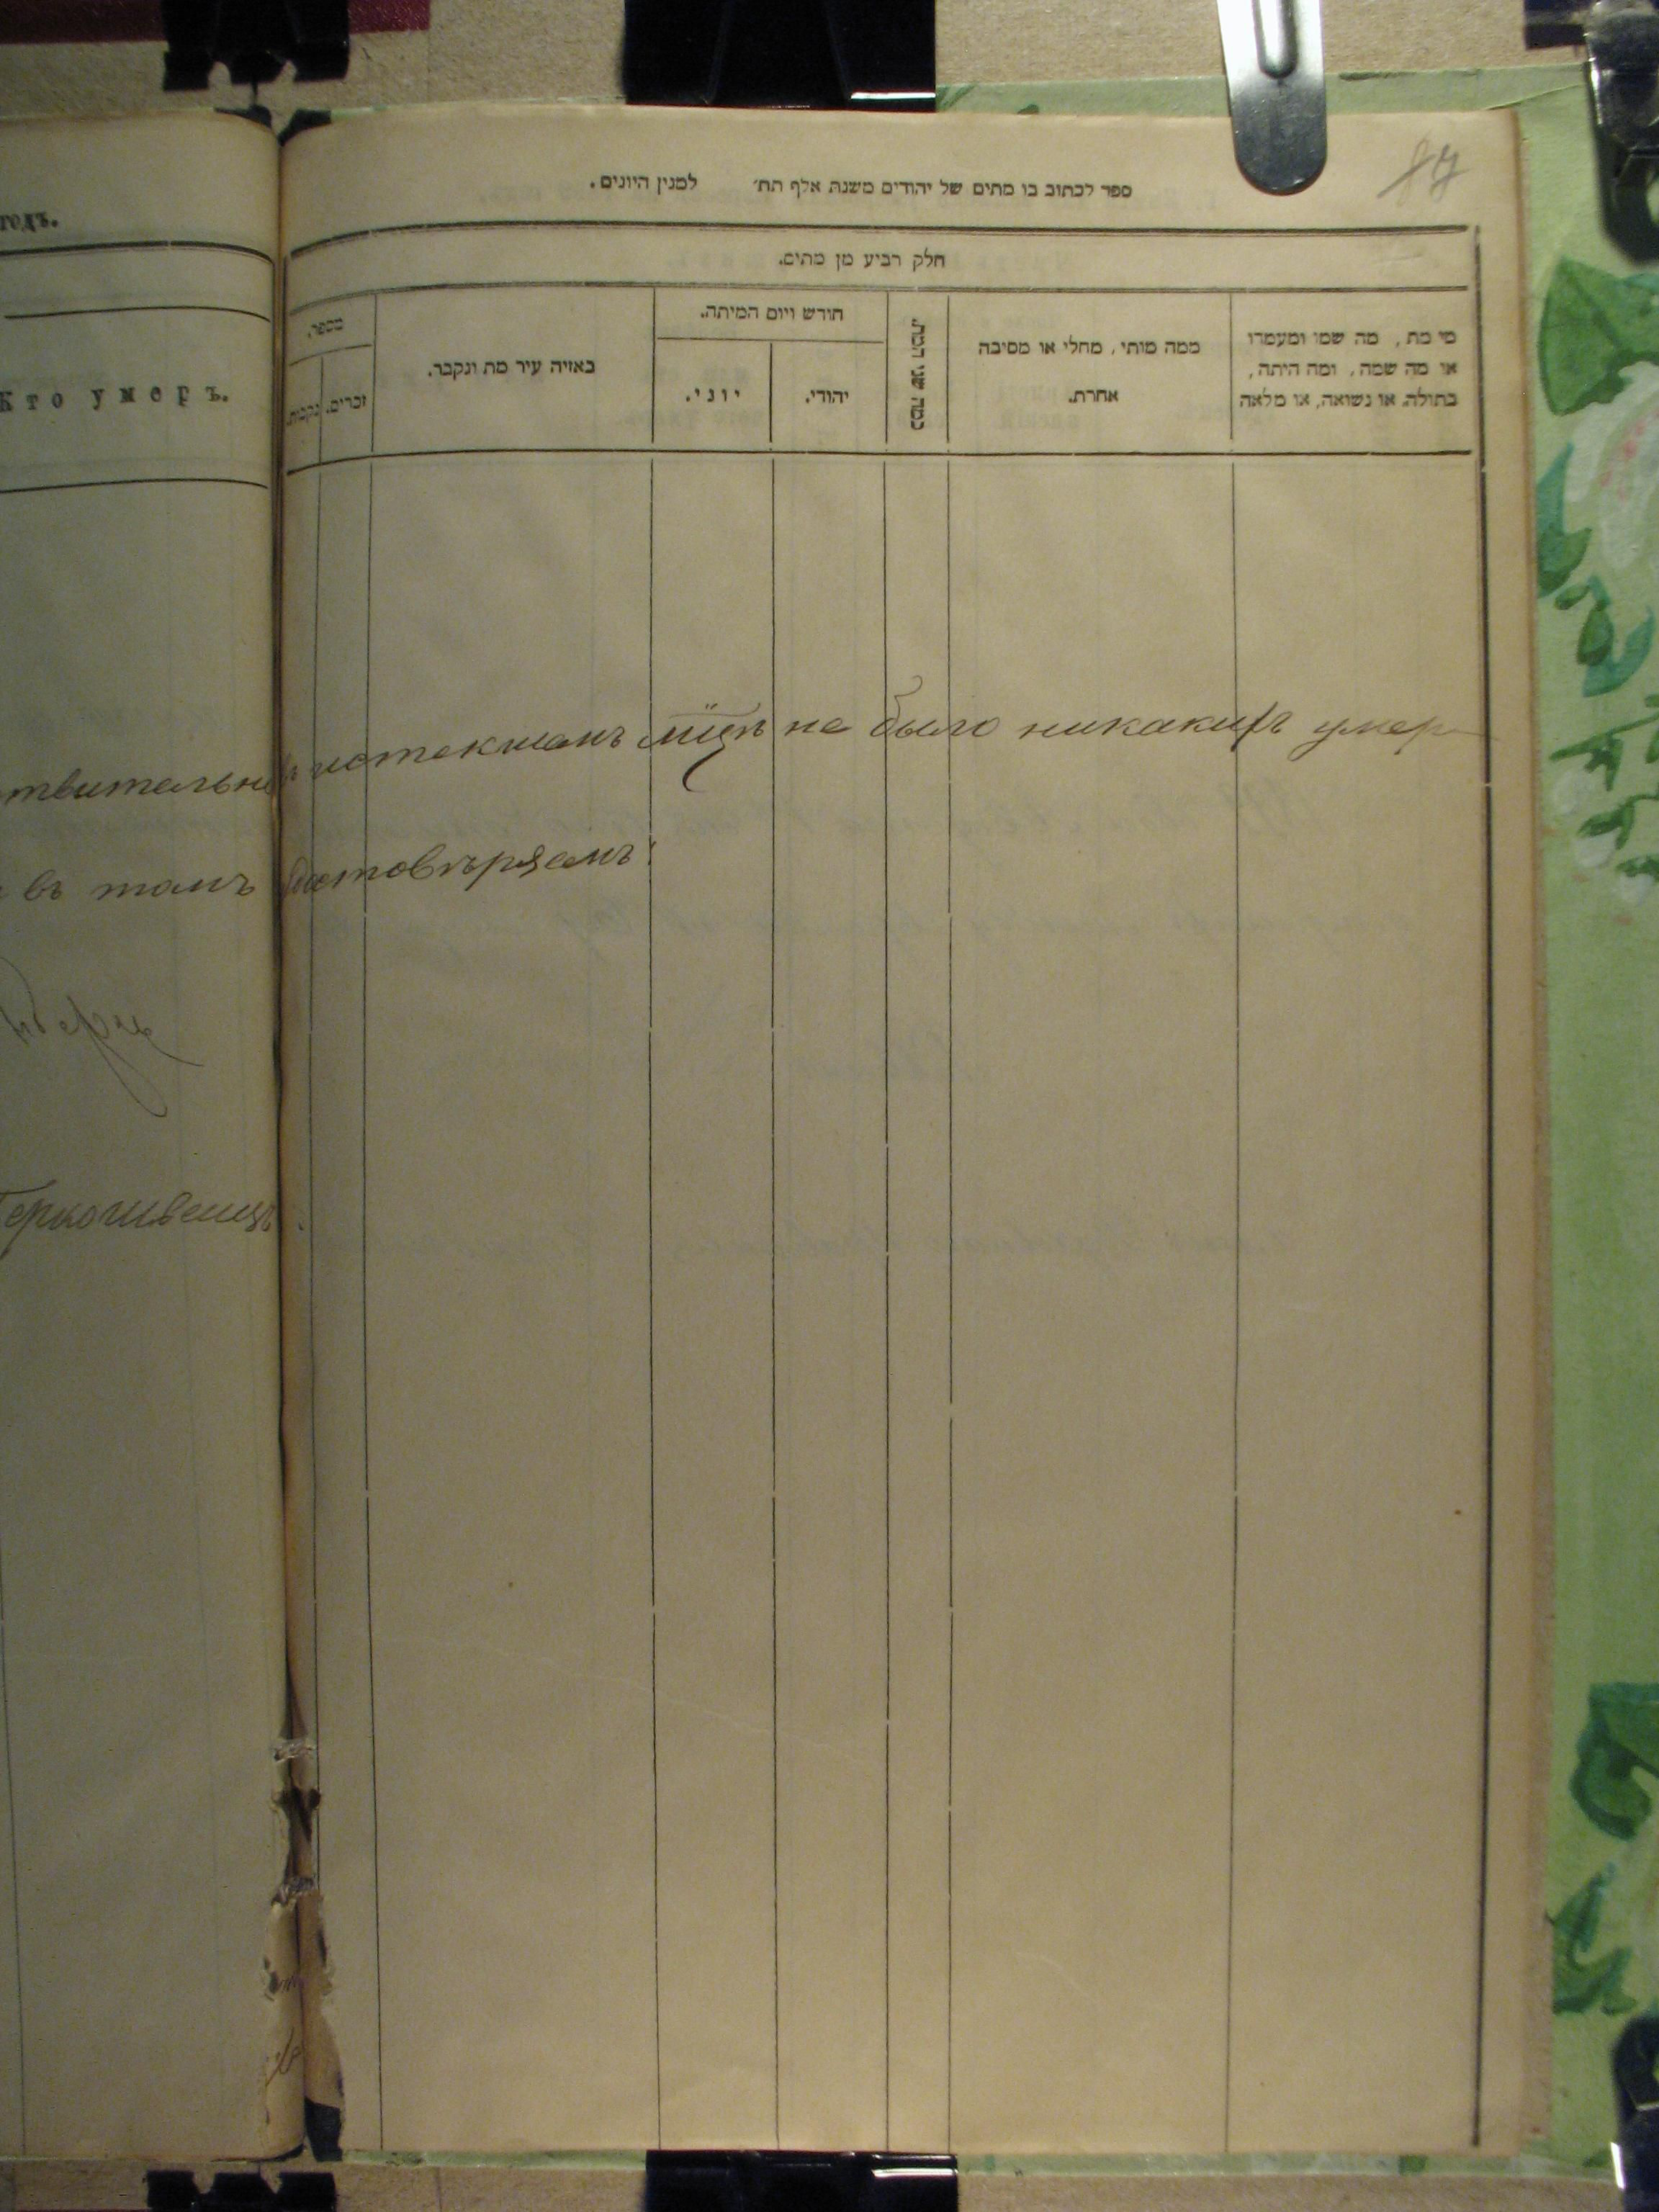 87
ספר לכתוב בו מתים של יהודים משנת אלף תת׳ למנין היונים.
годъ.
חלק רביע מן מתים.
Кто умеръ.
מי מת, מה שמו ומעמדו
או מה שמה, ומה היתה,
בתולה או נשואה, או מלאה
ממה מותי, מחלי או מסיבה
אחרת.
כמה שני המת.
חודש ויום המיתה.
יהודי.
יוני.
באיזה עיר מת ונקבר.
מספר.
זכרים.
נקבות.
твительно въ истекшемъ мцѣ не было никакихъ умер
въ томъ удостовѣряемъ: